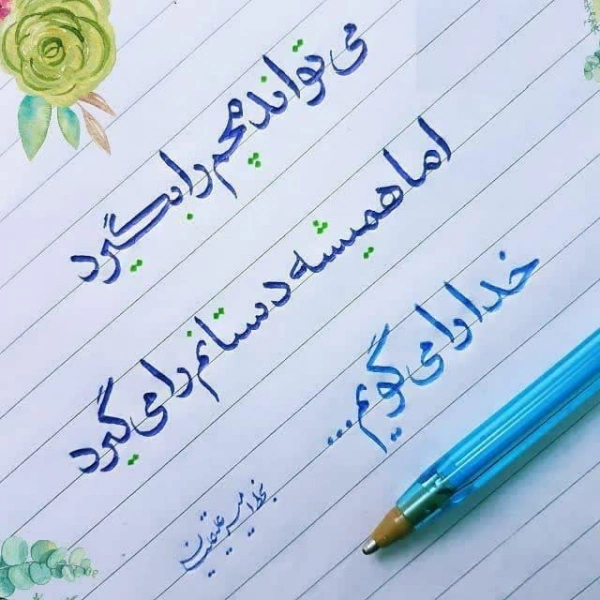 می تواند مچم را بگیرد
اما همیشه دستانم را می گیرد
خدا را می گویم...
بخط امیر